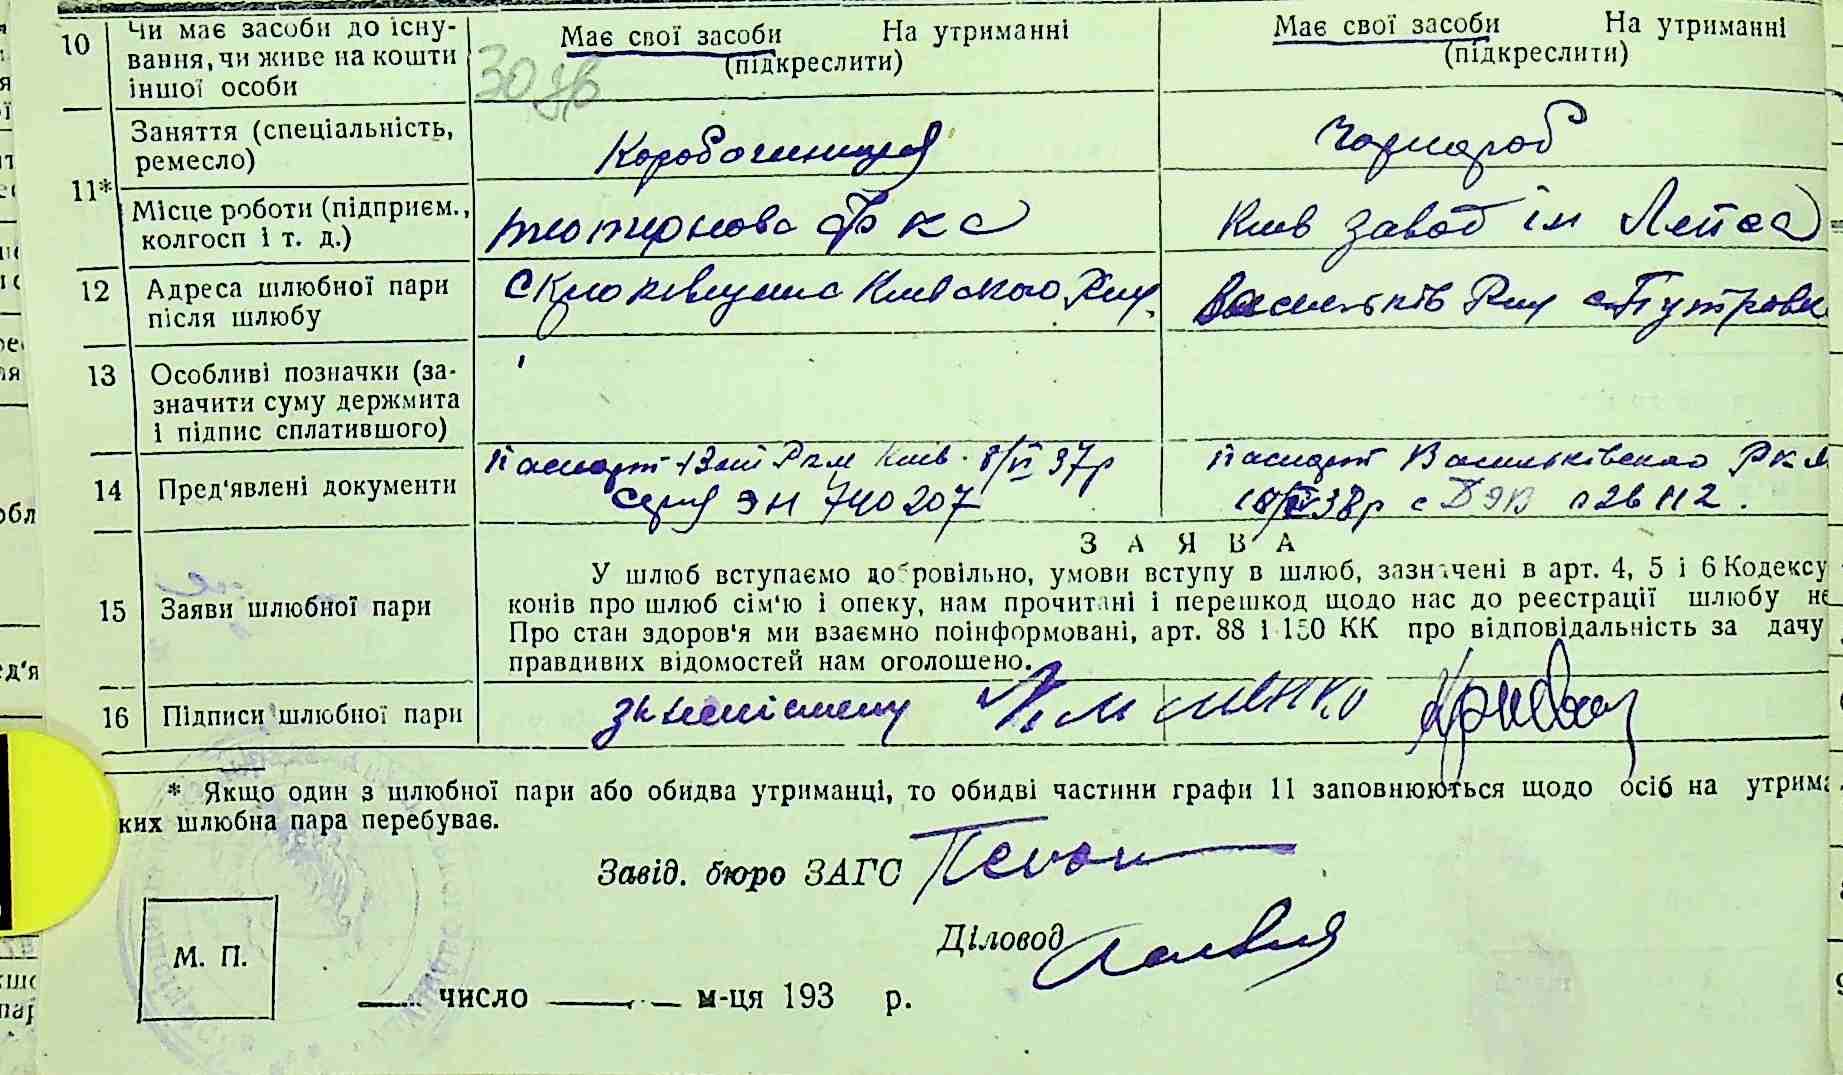 10 Чи має засоби до існу-
вання, чи живе на кошти
іншої особи
Має свої засоби На утриманні
(підкреслити)
Має свої засоби На утриманні
(підкреслити)
11* Заняття (спеціальність,
ремесло)
Коробочниця
Чорнороб
Місце роботи (підприєм.,
колгосп і т. д.)
тютюнова ф ка
Київ завод ім Лепсе
12 Адреса шлюбної пари
після шлюбу
Київського Р-ну
Васильків Р-ну с Путровка
13 Особливі позначки (за-
значити суму держмита
і підпис сплатившого)
14 Пред'явлені документи
Паспорт Ркм Київ 37р
серія ЭН 740207
Паспорт Васильківського Ркм
38р
З А Я В А
15 Заяви шлюбної пари
У шлюб вступаємо добровільно, умови вступу в шлюб, зазначені в арт. 4, 5 і 6 Кодексу
конів про шлюб сім'ю і опеку, нам прочитані і перешкод щодо нас до реєстрації шлюбу не
Про стан здоров'я ми взаємно поінформовані, арт. 88 і 150 КК про відповідальність за дачу
правдивих відомостей нам оголошено.
16 Підписи шлюбної пари
* Якщо один з шлюбної пари або обидва утриманці, то обидві частини графи 11 заповнюються щодо осіб на утрима
ких шлюбна пара перебуває.
Завід. бюро ЗАГС
Діловод
М. П.
число м-ця 193 р.